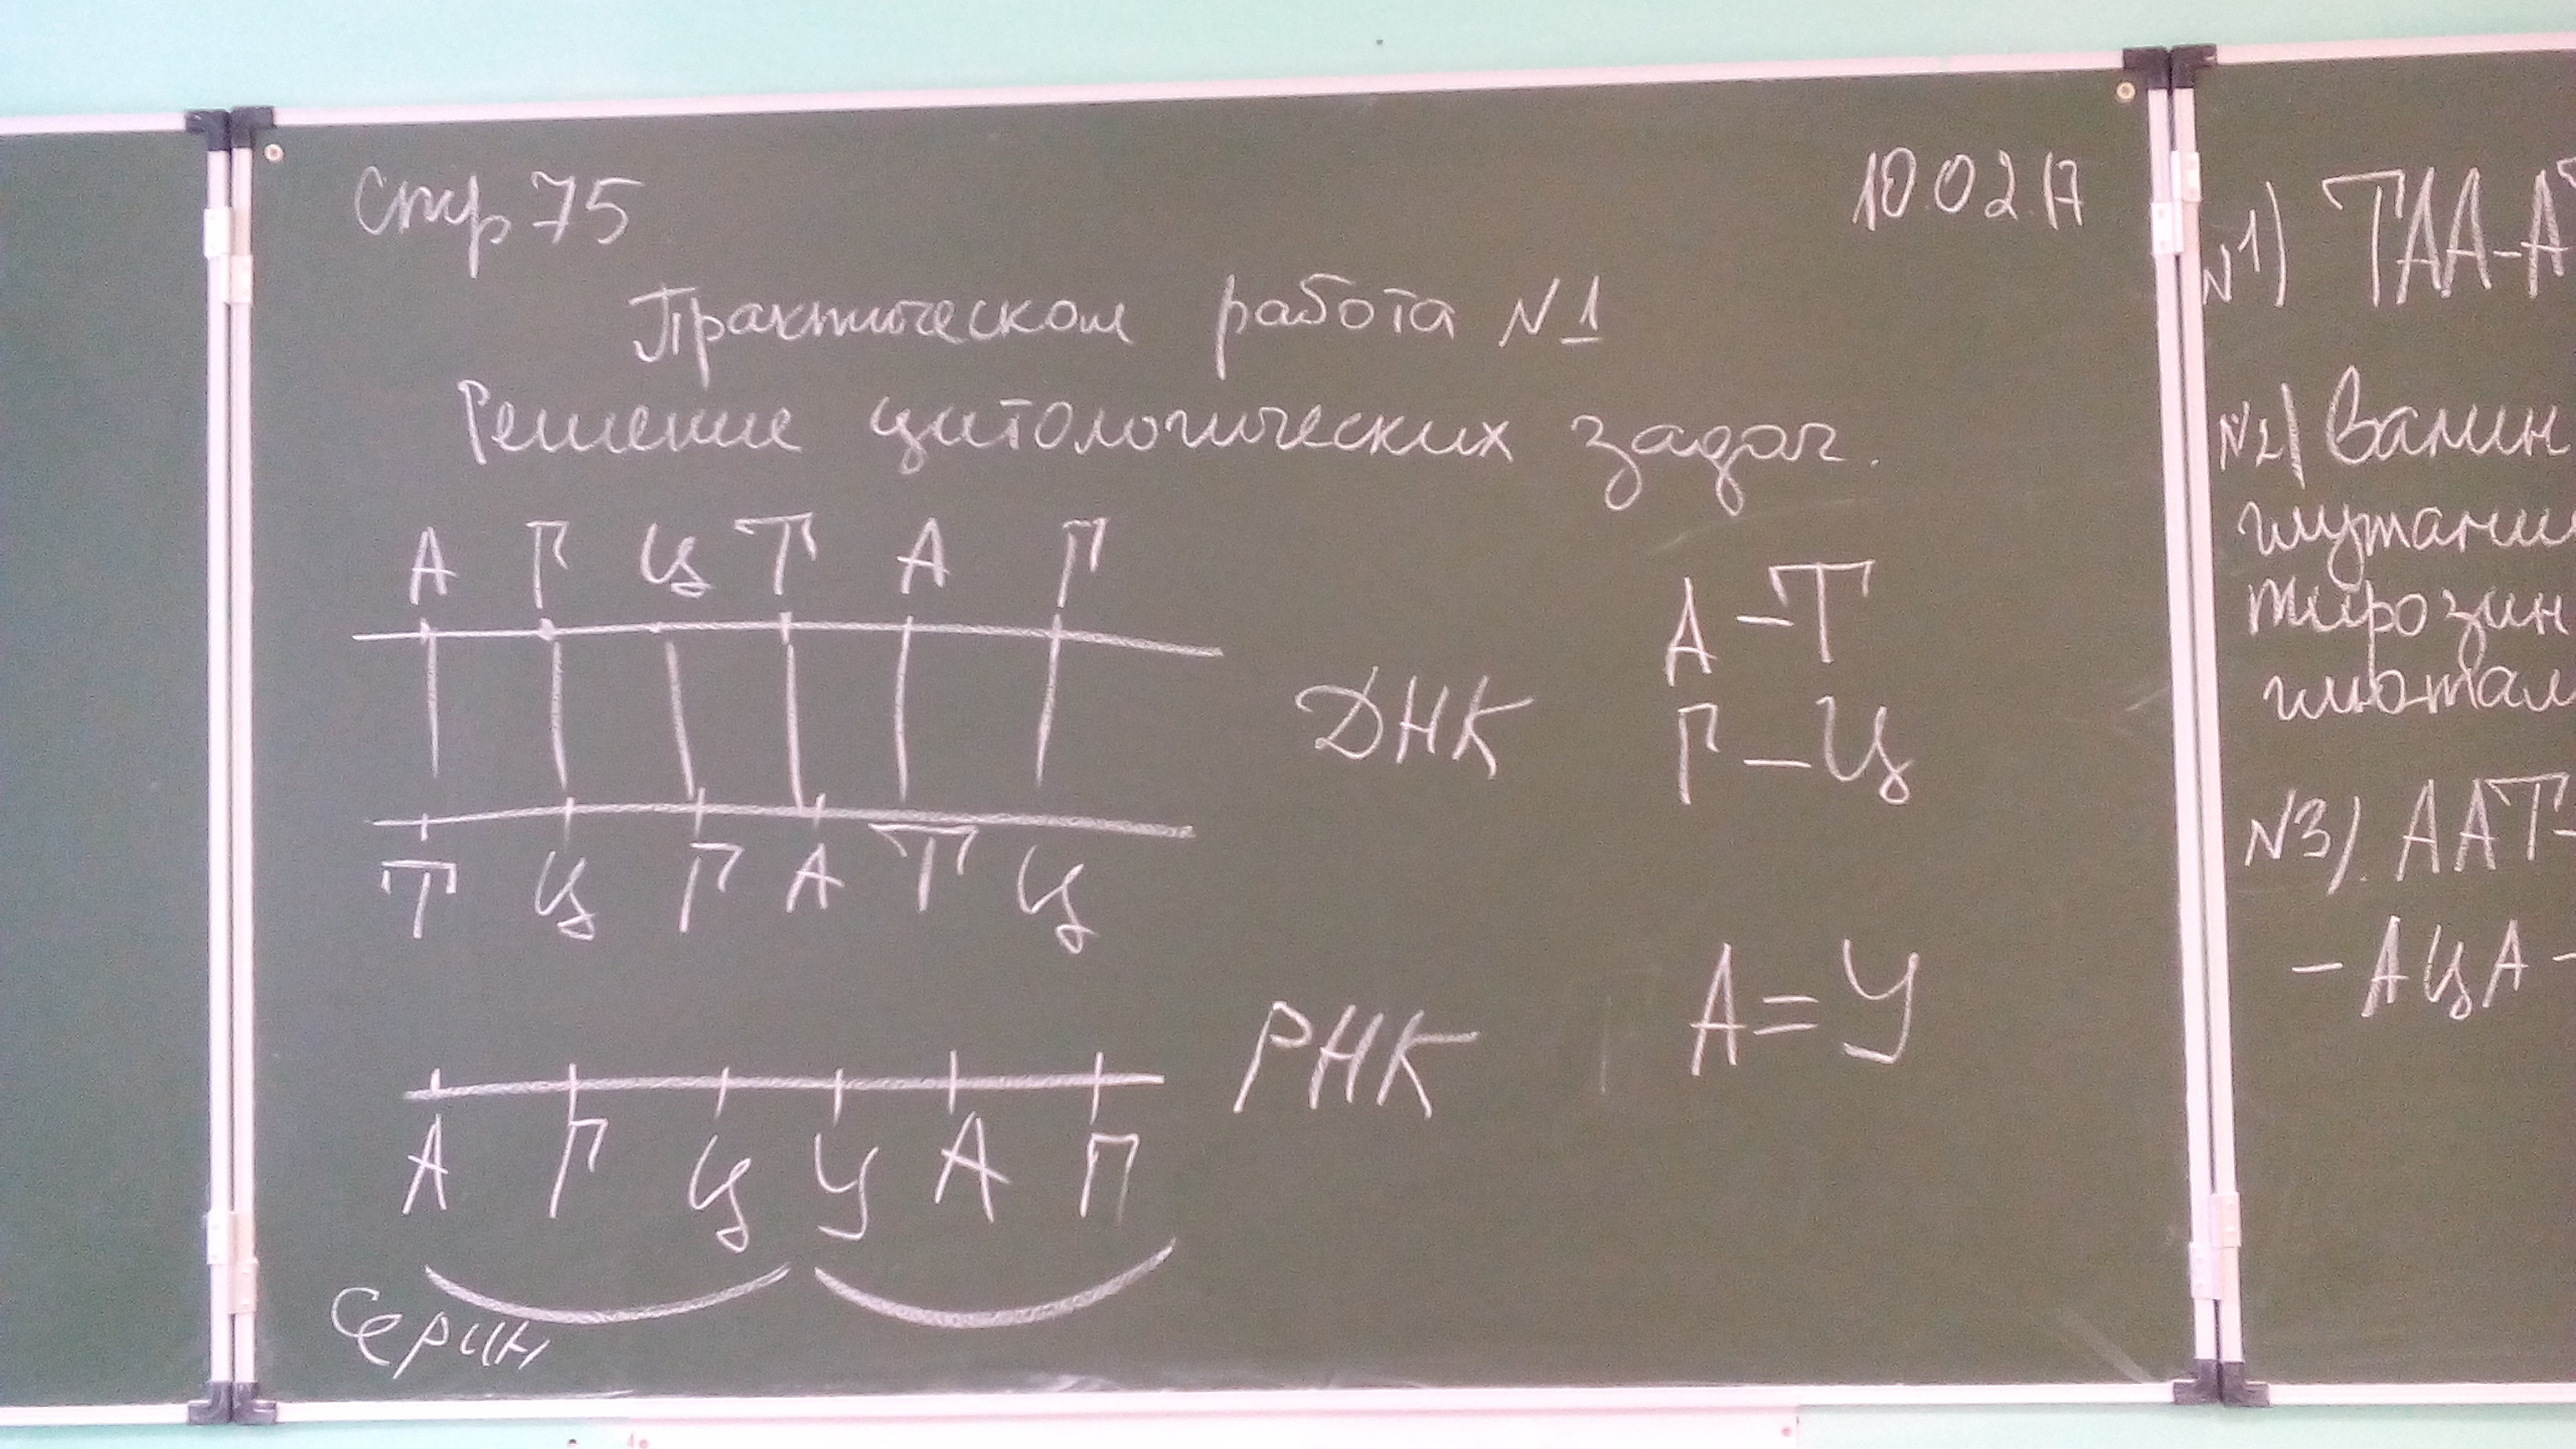 Стр 75
10.02.17
Практическая работа №1
Решение цитологических задач.
А Г Ц Т А Г
Т Ц Г А Т Ц
ДНК
А-Т
Г-Ц
РНК
А=У
А Г Ц У А Г
Серин
N1) ТАА-АТ
N2) Валин
тирозин
N3). ААТ-
-АЦА-